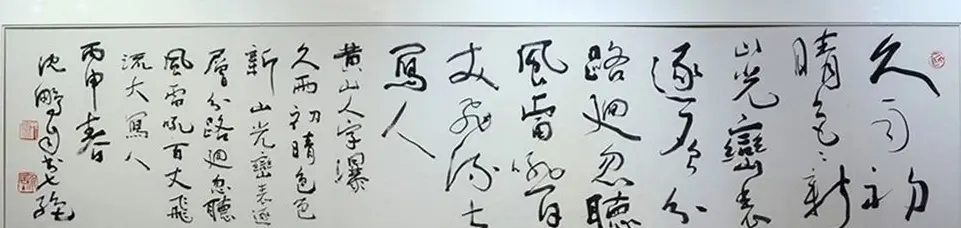 久雨初
晴色々新
山光巒表
逐層分
路迴忽聽
風雷吼百
丈飛流大
寫人
黄山人字瀑
久雨初晴色色
新山光巒表逐
層分路迴忽聽
風雷吼百丈飛
流大寫人
丙申春日
沈鵬自书七绝